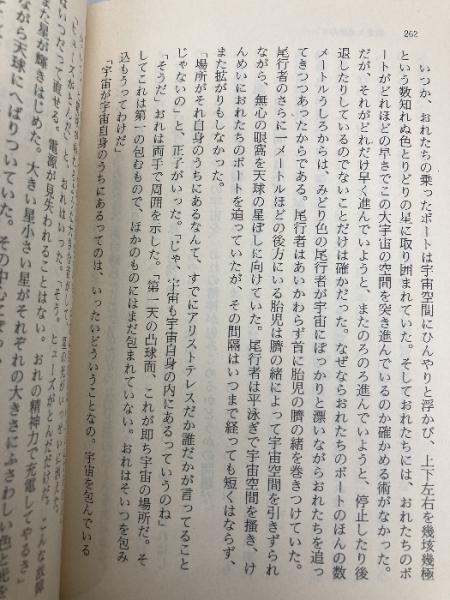 262
いつか、おれたちの乗ったボートは宇宙空間にひんやりと浮かび、上下左右を幾垓幾極
という数知れぬ色とりどりの星に取り囲まれていた。そしておれたちには、おれたちのボ
ートがどれほどの早さでこの大宇宙の空間を突き進んでいるのか確かめる術がなかった。
だが、それがどれだけ早く進んでいようと、またのろのろ進んでいようと、停止したり後
退したりしているのでないことだけは確かだった。なぜならおれたちのボートのほんの数
メートルうしろからは、みどり色の尾行者が宇宙にぽっかりと漂いながらおれたちを追っ
てきつつあったからである。尾行者はあいかわらず首に胎児の臍の緒を巻きつけていた。
尾行者のさらに一メートルほどの後方にいる胎児は臍の緒によって宇宙空間を引きずられ
ながら、無心の眼窩を天球の星ぼしに向けていた。尾行者は平泳ぎで宇宙空間を掻き、け
んめいにおれたちのボートを追っていたが、その間隔はいつまで経っても短くはならず、
また拡がりもしなかった。
「場所がそれ自身のうちにあるなんて、すでにアリストテレスだか誰だかが言ってること
じゃないの」と、正子がいった。「じゃ、宇宙も宇宙自身の内にあるっていうのね」
「そうだ」おれは両手で周囲を示した。「第一天の凸球面、これが即ち宇宙の場所だ。そ
してこれは第一の包むもので、ほかのものにはまだ包まれていない。おれはそいつを包み
込もうってわけだ」
「宇宙が宇宙自身のうちにあるってのは、いったいどういうことなの。宇宙を包んでいる
ヒューズがとんだだけだ。こんな故障
はいつだって直せる。電源が見失われることはない。おれの精神力で充電してやるさ」
また星が輝きはじめた。大きい星小さい星がそれぞれの大きさにふさわしい色と光を
ながら天球にへばりついていた。その中心に